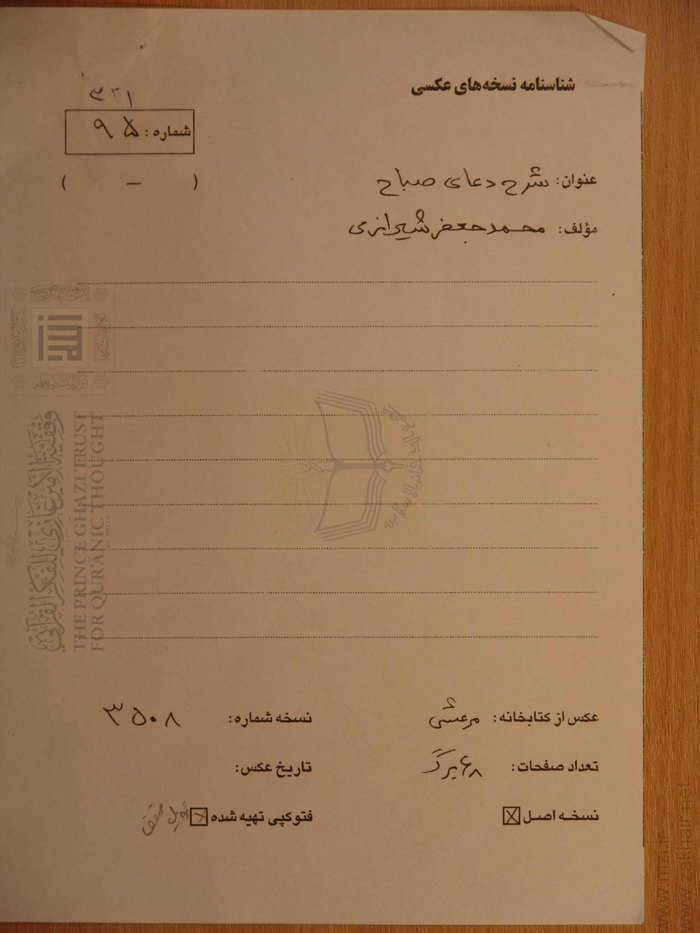 شناسنامه نسخه‌های عکسی
۳۲۱
شماره: ۹۵
عنوان: شرح دعای صباح ( - )
مؤلف: محمد جعفر شیرازی
THE PRINCE GHAZI TRUST
FOR QUR'ANIC THOUGHT
وقفية الأمير غازي للفكر القرآني
عکس از کتابخانه: مرعشی نسخه شماره: ۳۵۰۸
تعداد صفحات: ۶۸ برگ تاریخ عکس:
نسخه اصل ☒ فتوکپی تهیه شده ☒